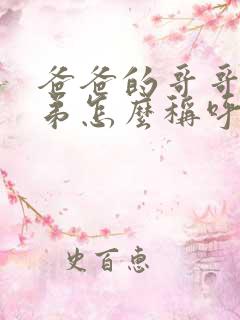 爸爸的哥哥
弟怎麼稱呼
史百惠